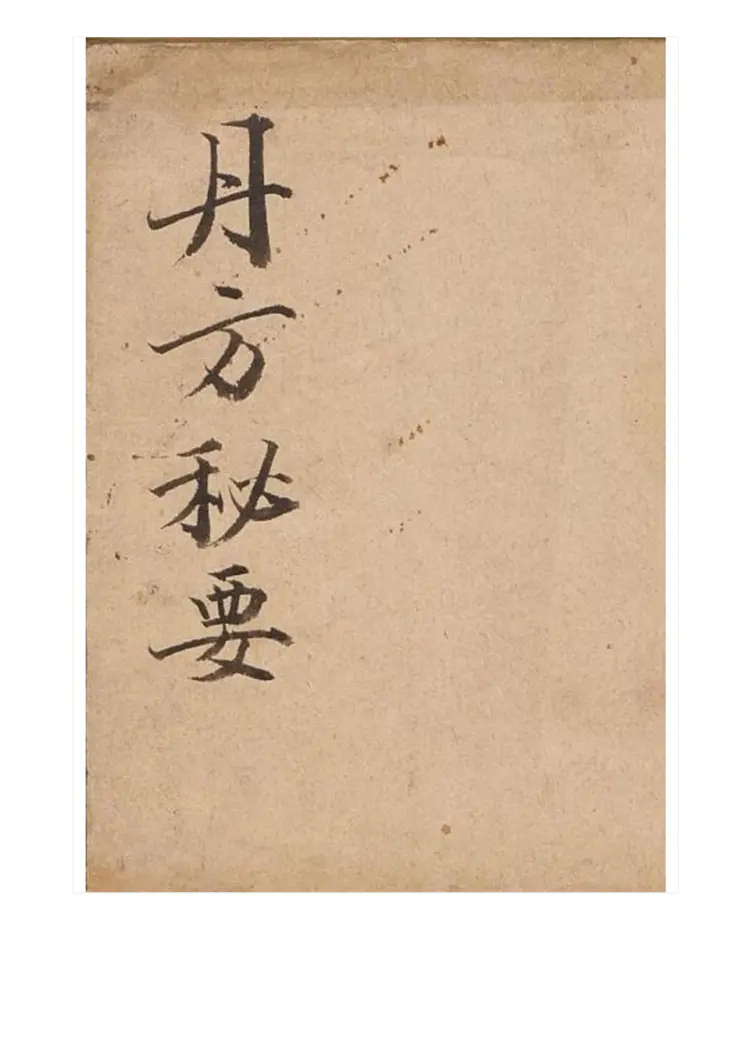 丹方秘要